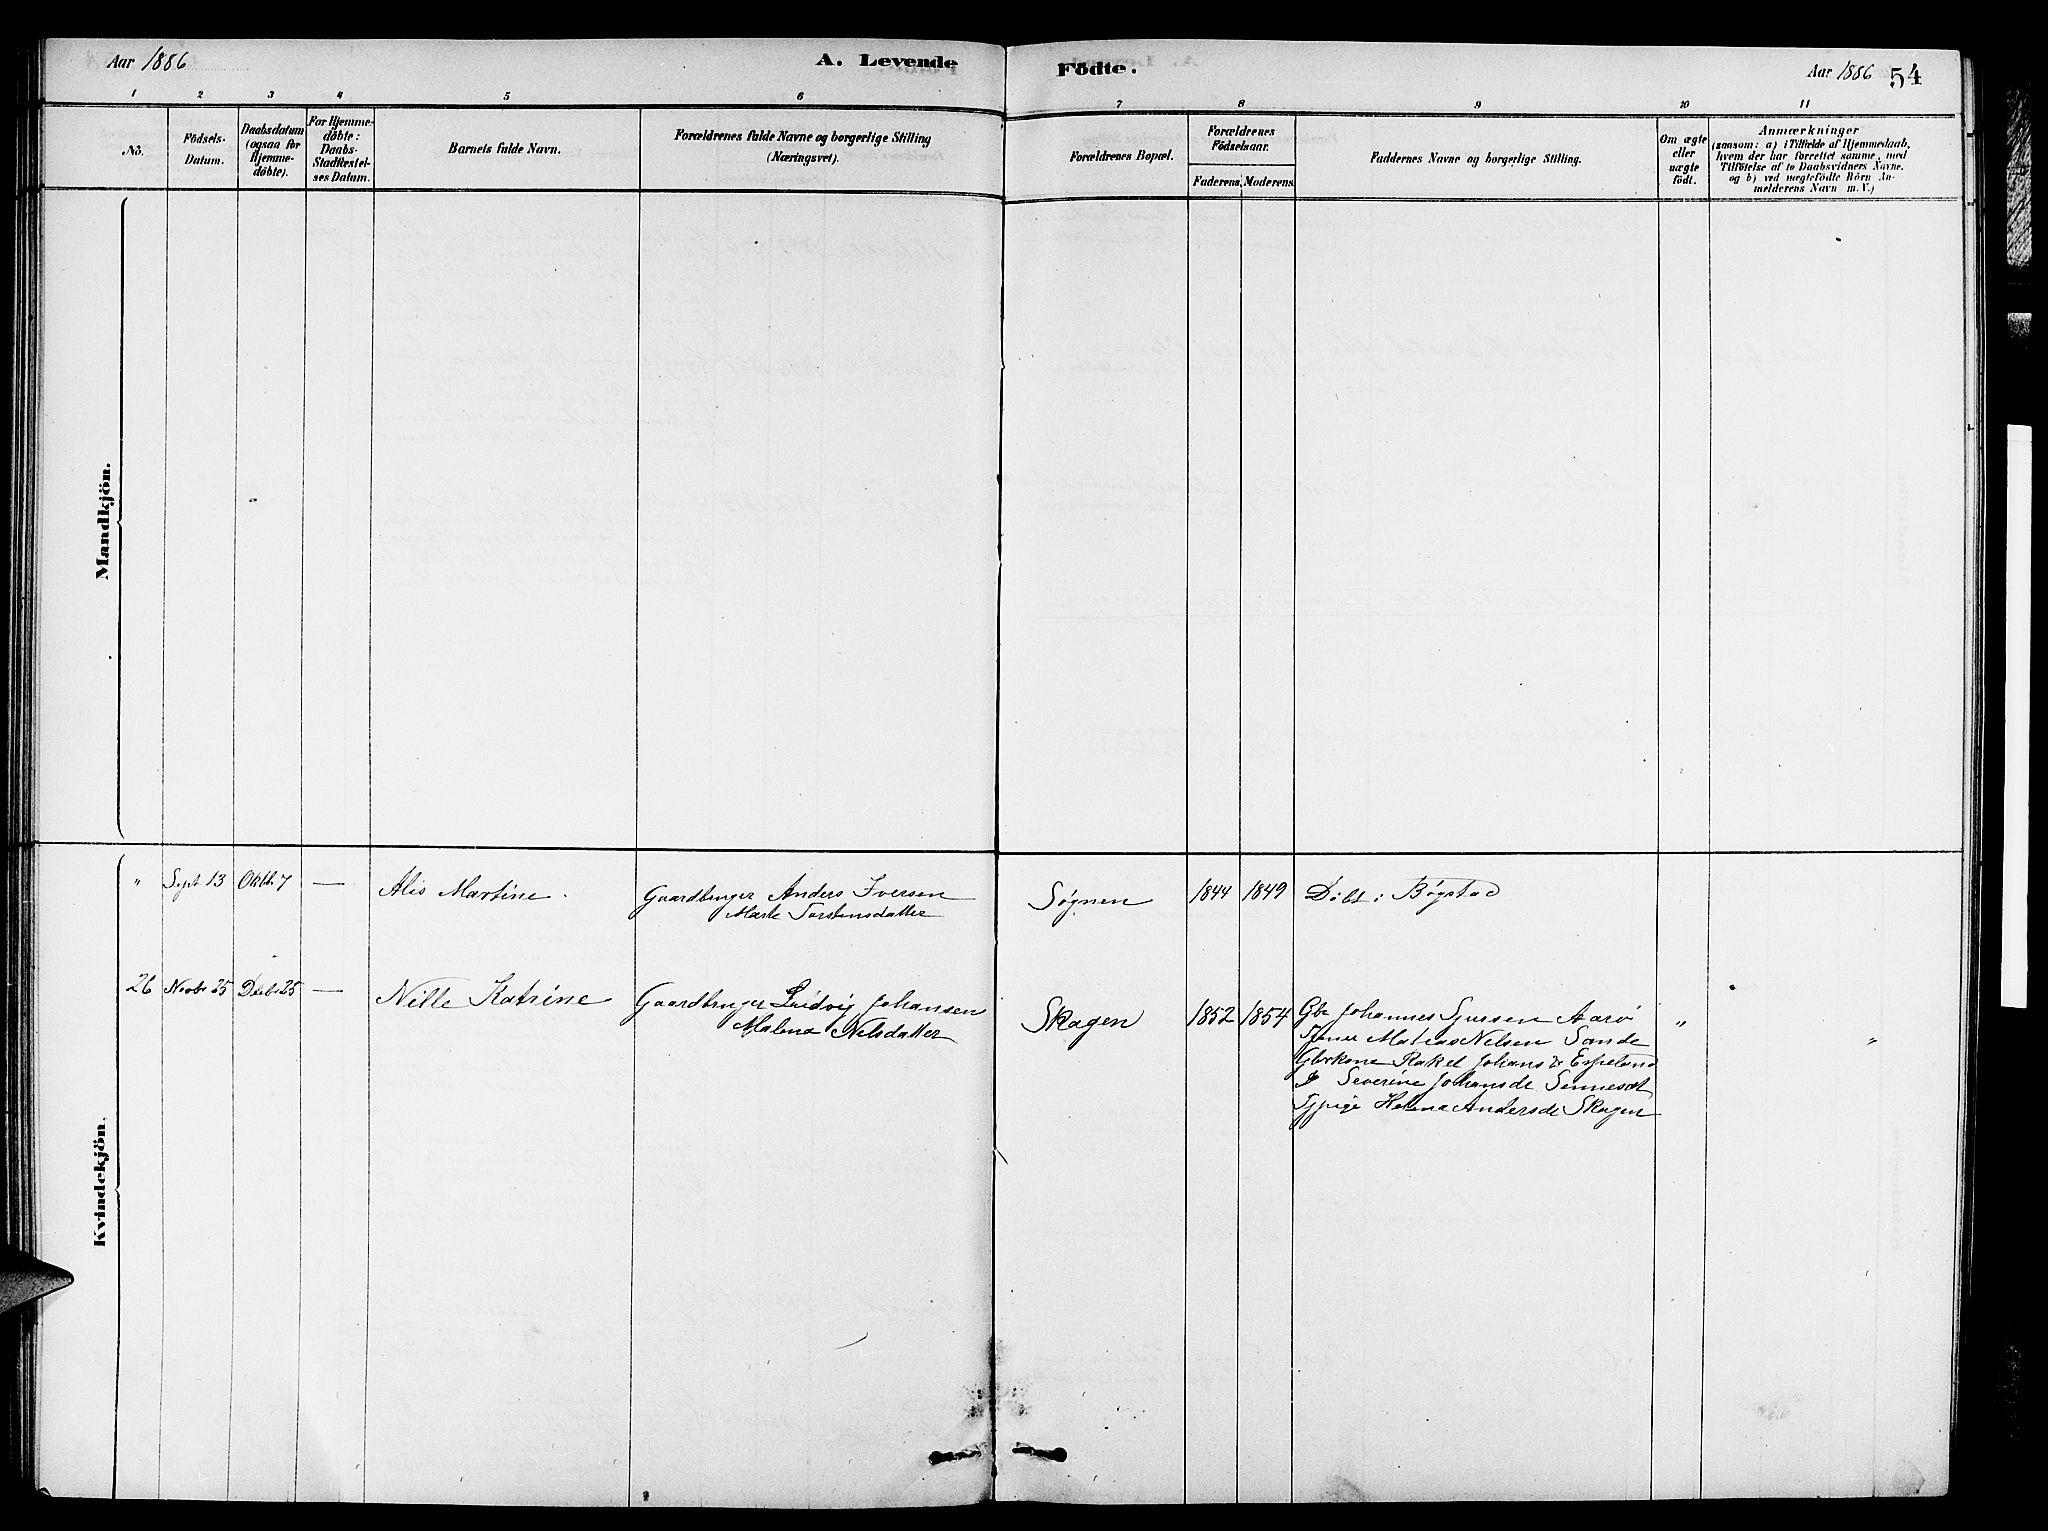 Aar 1886
A. Levende
Födte.
Aar 1886
54
1 2 3 4 5 6 7 8 9 10 11
No.
Födsels-
Datum.
Daabsdatum
(ogsaa for
Hjemme-
döbte).
For Hjemme-
döbte:
Daabs-
Stadfæstel-
ses Datum.
Barnets fulde Navn.
Forældrenes fulde Navne og borgerlige Stilling
(Næringsvei).
Forældrenes Bopæl.
Forældrenes
Födselsaar.
Faderens. Moderens.
Faddernes Navne og borgerlige Stilling.
Om ægte
eller
uægte
födt.
Anmærkninger
(saasom: a) i Tilfælde af Hjemmedaab,
hvem der har forrettet samme, med
Tilföielse af to Daabsvidners Navne.
og b) ved uægtefödte Börn An-
melderens Navn m. V.)
Mandkjön.
Kvindekjön.
" Sept 13 Oktbr 7 — Alis Martine. Gaardbruger Anders Iversen Søgnen 1844 1849 Døbt i Bøgstad
Marte Torstensdatter
26 Novbr 25 Decbr 25 — Nille Katrine Gaardbruger Ludvig Johansen Skagen 1852 1854 Gbr Johannes Sjursen Aarø " "
Malena Nilsdatter
Tjener Matias Nelsen Sande
Gbrkone Rakel Johans dr Espeland
Do Severine Johansdr Sennesæt
Tjpige Helena Andersdr Skagen